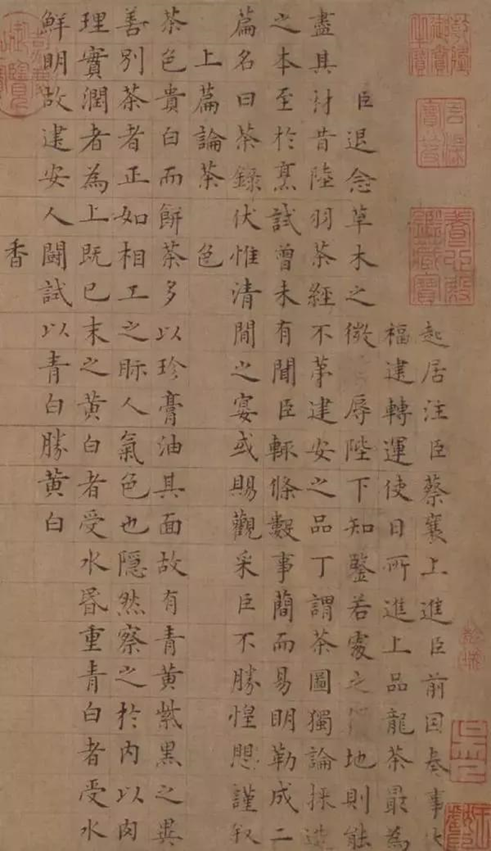 起居注臣蔡襄上進臣前因奏事伏
福建轉運使日所進上品龍茶最為
臣退念草木之微辱陛下知鑒若處之地則能
盡其材昔陸羽茶經不第建安之品丁謂茶圖獨論採造
之本至於烹試曾未有聞臣輒條數事簡而易明勒成二
篇名曰茶錄伏惟清間之宴或賜觀采臣不勝惶愳謹叙
上篇論茶 色
茶色貴白而餅茶多以珍膏油其面故有青黃紫黑之異
善別茶者正如相工之眎人氣色也隱然察之於內以肉
理實潤者為上既已末之黃白者受水昏重青白者受水
鮮明故建安人鬪試以青白勝黃白
香